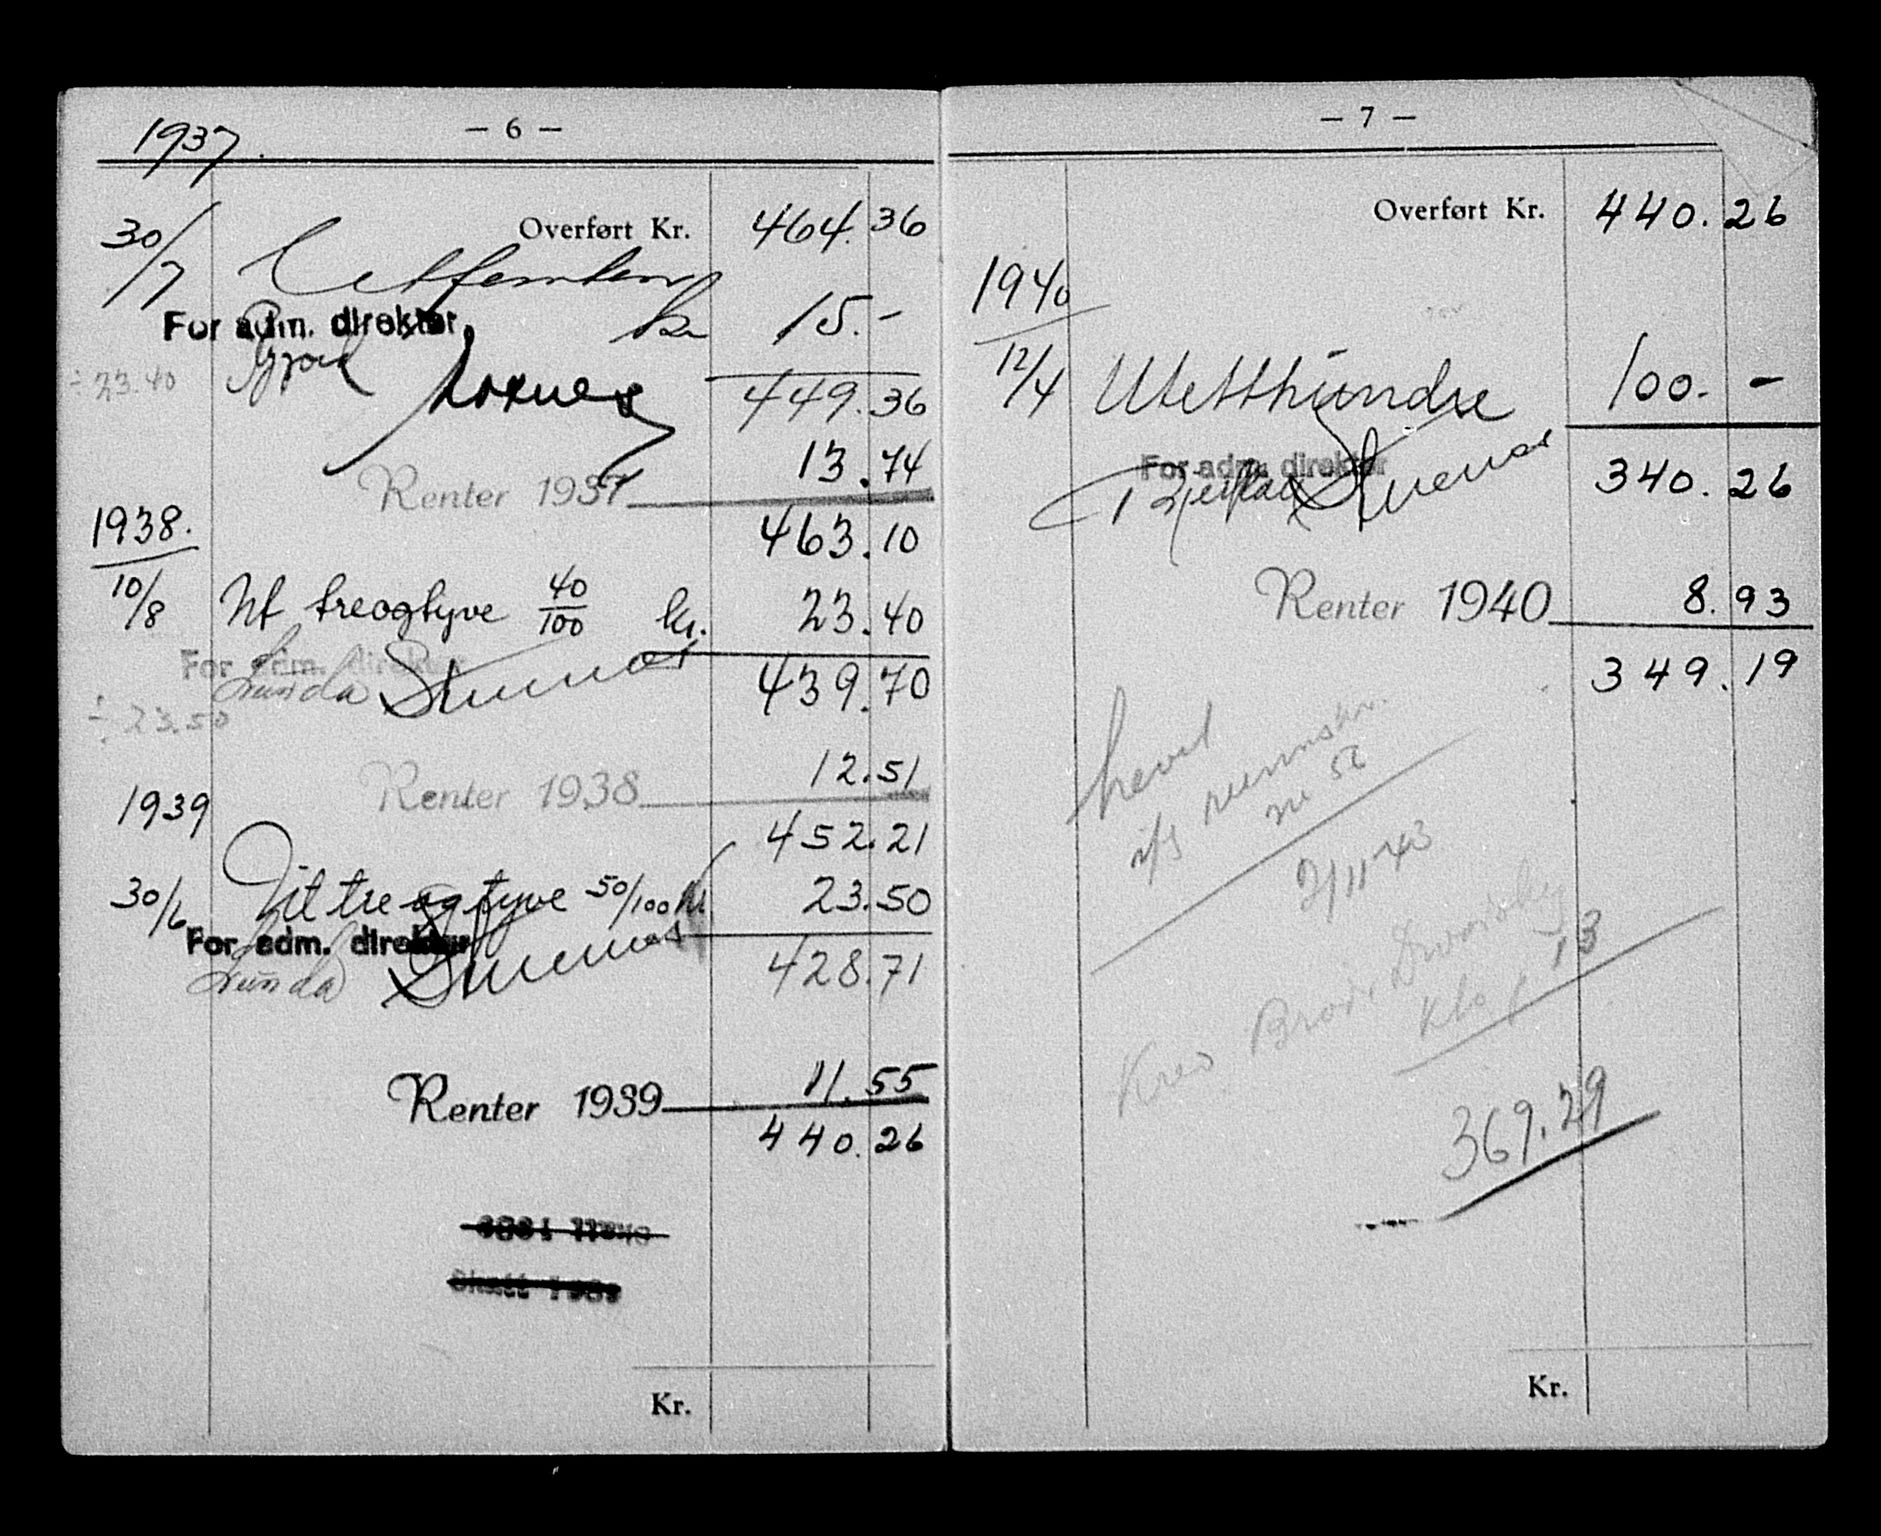 1937.
— 6 —
30/7 Overført Kr. 464.36
Ut femten kr 15.-
For adm. direktør
÷ 23.40
449.36
13.74
Renter 1937
1938.
463.10
10/8 Ut treogtyve 40/100 kr. 23.40
For adm. direktør
Lunda
439.70
÷ 23.50
12.51
Renter 1938
1939
452.21
30/6 Ut tre og tyve 50/100 kr 23.50
For adm. direktør
Lunda
428.71
Renter 1939 11.55
440.26
Skatt 1939
Kr.
— 7 —
Overført Kr. 440.26
1940
12/4 Utetthundre 100.-
For adm. direktør
340.26
Renter 1940 8.93
349.19
hevet
56
2/11-43
13
369.29
Kr.